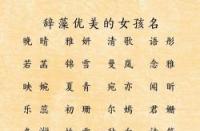 辞藻优美的女孩名
晚晴 雅妍 清歌 语彤
若菡 锦雪 曼岚 念雅
映婉 夏青 宛亦 闻昕
乐蕊 初珊 尔嫣 君姗